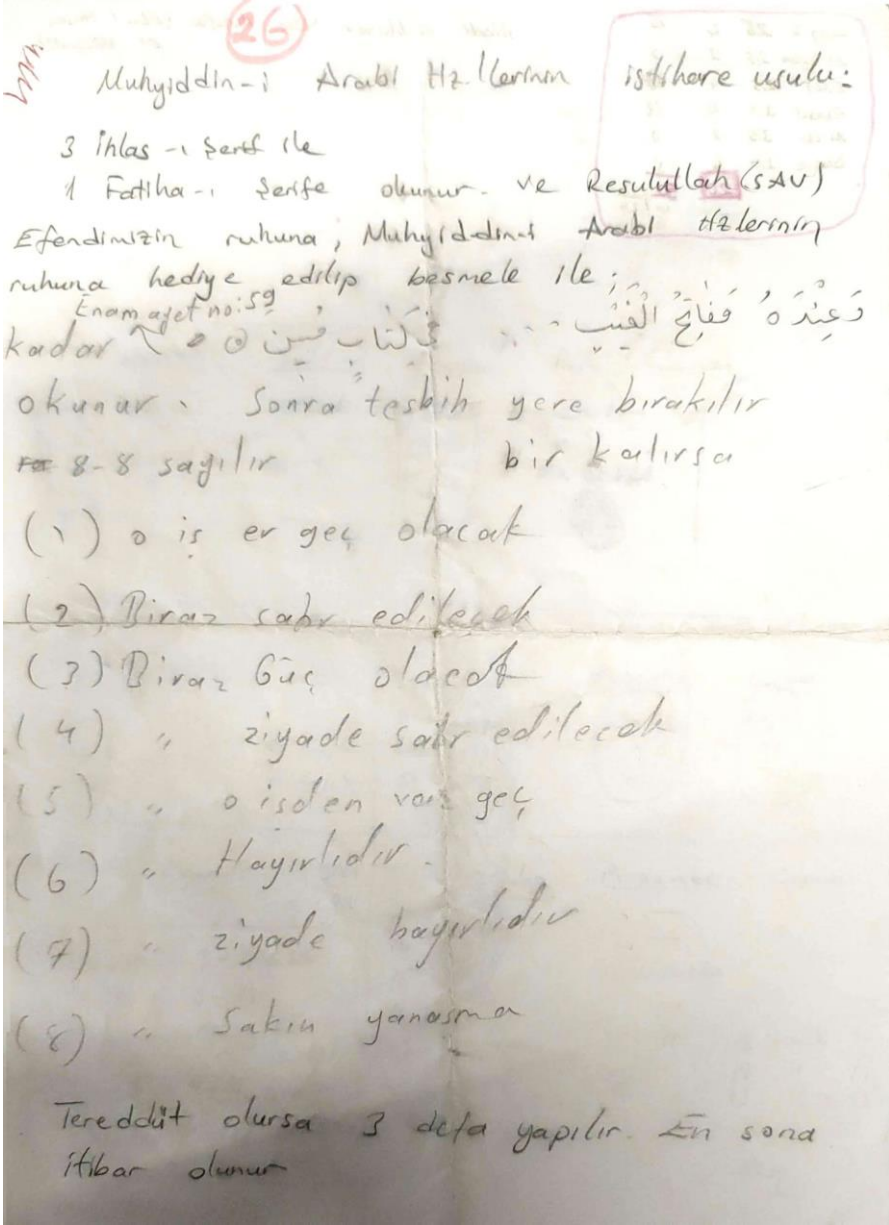 26
Muhyiddin-i Arabî Hz.lerinin istihare usulu:
3 İhlas-ı Şerif ile
1 Fatiha-ı Şerife okunur. ve Resulullah (SAV)
Efendimizin ruhuna, Muhyiddin-i Arabî Hzlerinin
ruhuna hediye edilip besmele ile;
Enam ayet no: 59
وَعِنْدَهُ مَفَاتِحُ الْغَيْبِ ... فِي كِتَابٍ مُبِينٍ
kadar
okunur. Sonra tesbih yere bırakılır
8-8 sayılır bir kalırsa
(١) o iş er geç olacak
(2) Biraz sabr edilecek
(3) Biraz Güç olacak
(4) " ziyade sabr edilecek
(5) " o isden vaz geç
(6) " Hayırlıdır.
(7) " ziyade hayırlıdır
(8) " Sakın yanaşma
Tereddüt olursa 3 defa yapılır. En sona
itibar olunur